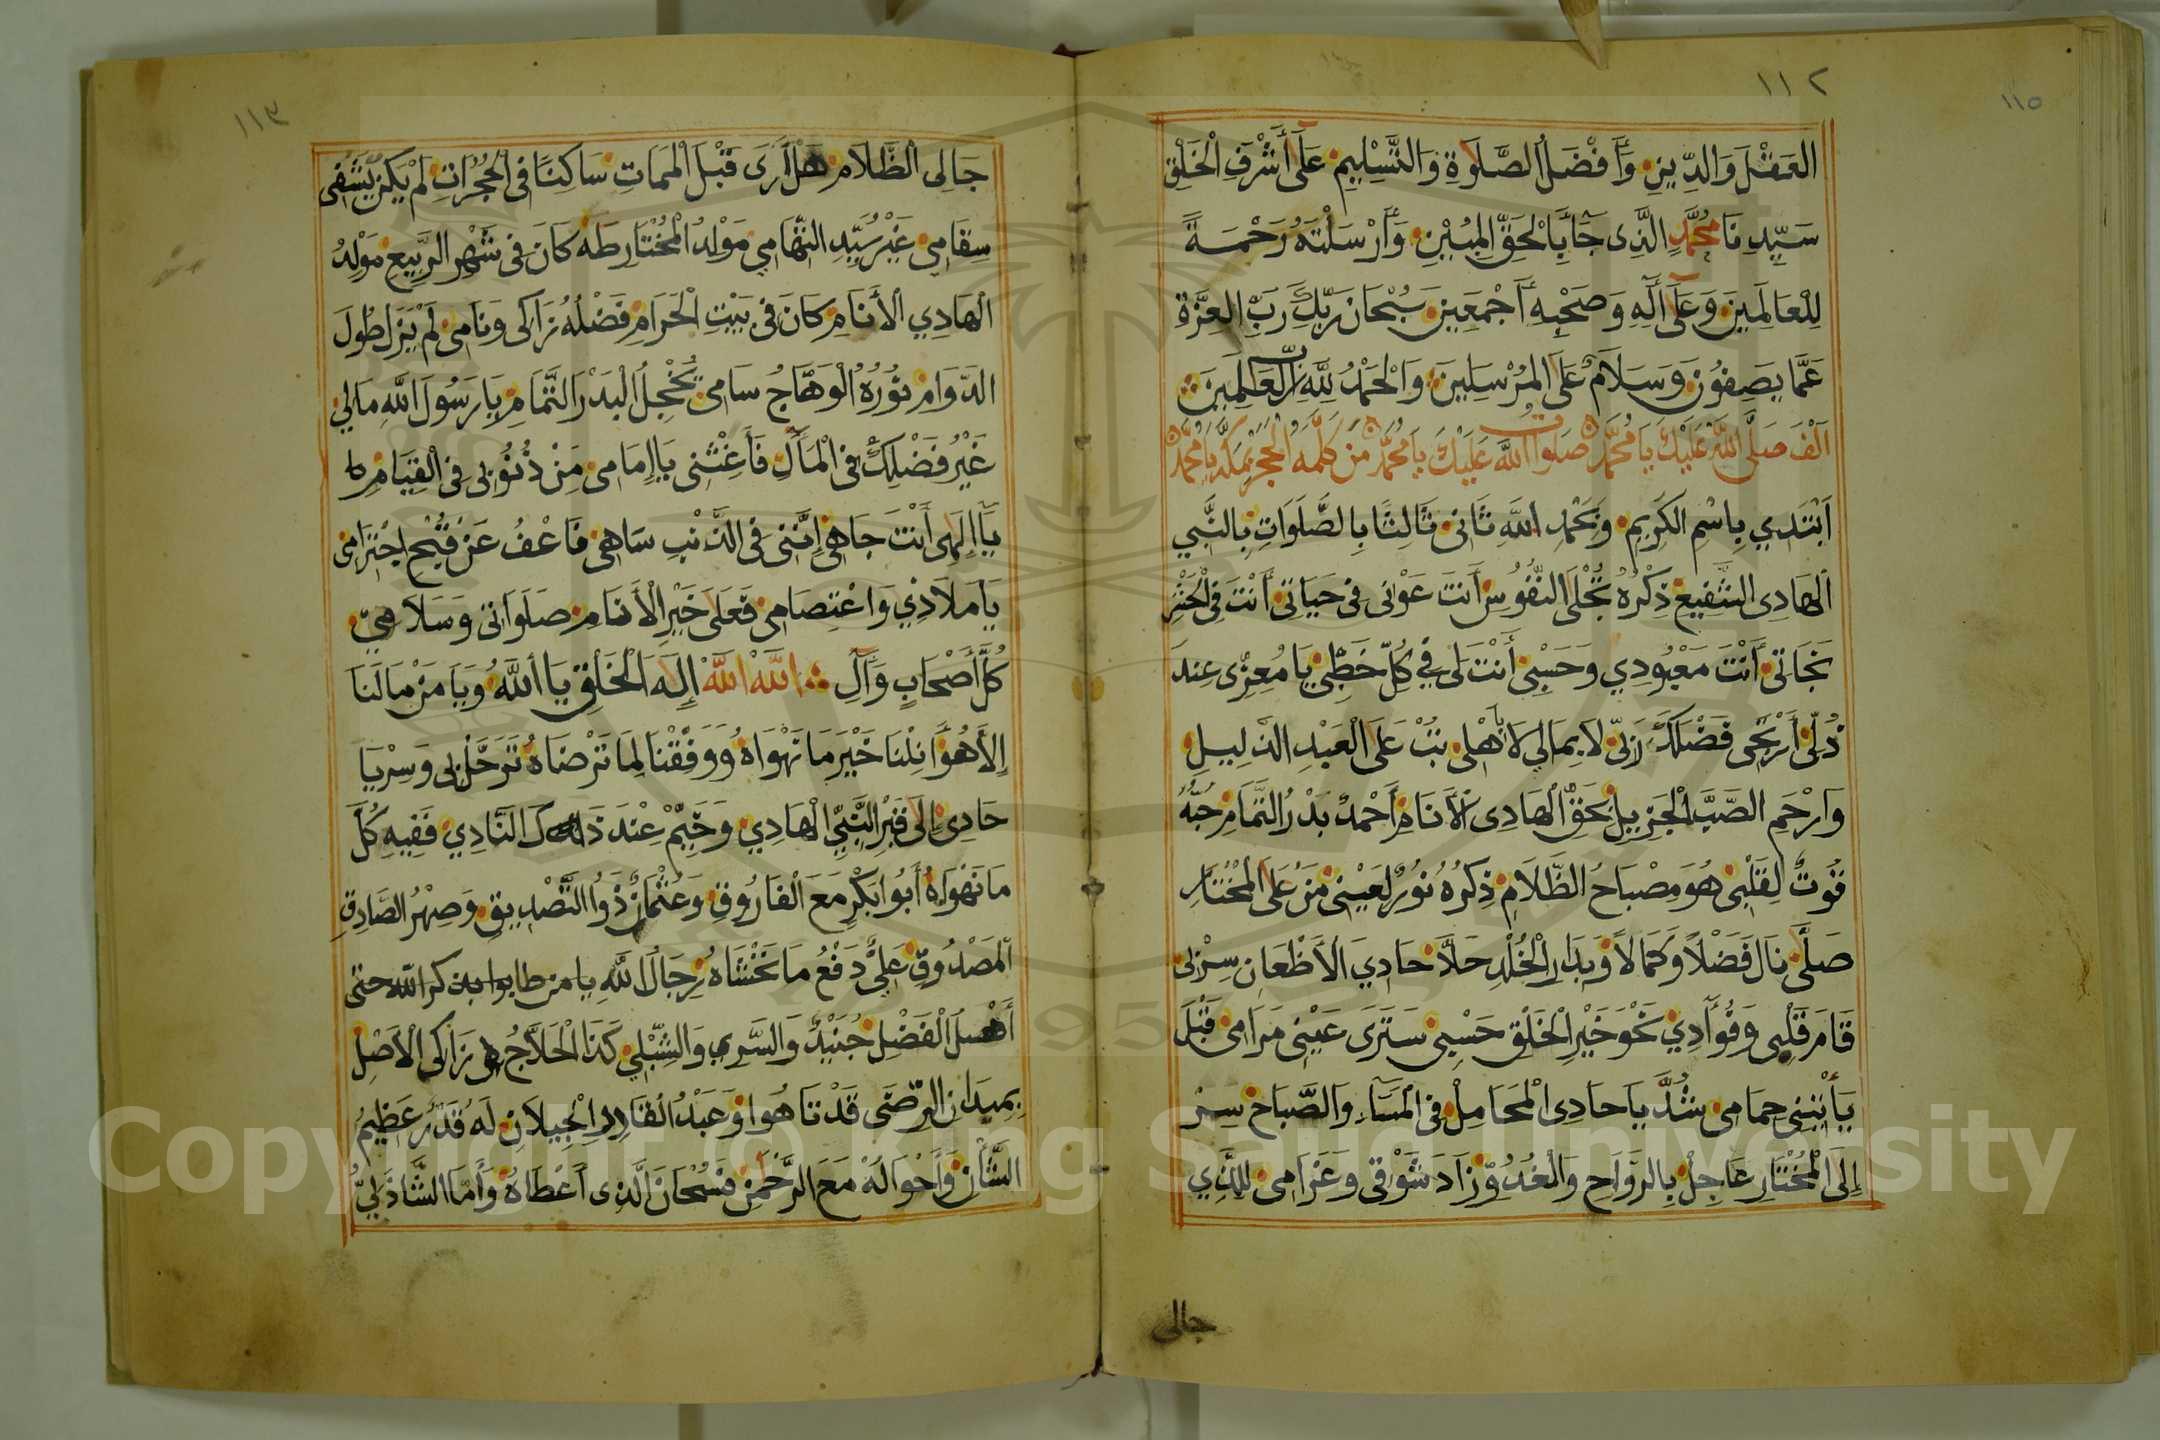 ١١٢
١١٥
العَقْلَ وَالدِّينِ وَأَفْضَلُ الصَّلَوةِ وَالتَّسْلِيمِ عَلَى أَشْرَفِ الْخَلْقِ
سَيِّدِنَا مُحَمَّدٍ الَّذِى جَآءَ بِالْحَقِّ الْمُبِيْنِ وَأَرْسَلْتَهُ رَحْمَةً
لِلْعَالَمِينَ وَعَلَى آلِهِ وَصَحْبِهِ أَجْمَعِينَ سُبْحَانَ رَبِّكَ رَبِّ العِزَّةِ
عَمَّا يَصِفُونَ وَسَلَامٌ عَلَى الْمُرْسَلِينَ وَالْحَمْدُ لِلَّهِ رَبِّ الْعَالَمِينَ
اَلْفَ صَلَّى اللَّهُ عَلَيْكَ يَا مُحَمَّدْ صَلَوَاتُ اللَّه عَلَيْكَ يَا مُحَمَّدْ مَنْ كَلَّمَهُ الْحَجَرْ بِمَكَّه يَا مُحَمَّدْ
اَبْتَدِي بِاسْمِ الكَرِيمِ وَبِحَمْدِ اللَّهِ ثَانِى ثَالِثًا بِالصَّلَوَاتِ بِالنَّبِي
الْهَادِى الشَّفِيعِ ذِكْرُهُ يُجْلَى النُّفُوسِ أَنتَ عَوْنِى فِى حَيَاتِى أَنْتَ فِى الْحَشْرِ
نَجَاتِى أَنْتَ مَعْبُودِي وَحَسْبِى أَنْتَ لِى فِي كُلِّ خَطْبِى يَا مُعِزِّى عِندَ
ذُلِّى أَرْتَجِى فَضْلَكَ رَبِّى لَا بِمَالِى لَا بِأَهْلِى تُبْ عَلَى الْعَبْدِ الذَّلِيلِ
وَارْحَمِ الصَّبَّ الْجَزِيلْ بِحَقِّ الْهَادِى الْأَنَامِ أَحْمَدْ بَدْرُ التَّمَامِ حُبُّهُ
قُوتٌ لِقَلْبِى هُوَ مِصْبَاحُ الظَّلَامِ ذِكْرُهُ نُورٌ لِعَيْنِى مَنْ عَلَى الْمُخْتَارِ
صَلَّى نَالَ فَضْلًا وَكَمَالًا وَبَدَارِ الْخُلْدِ حَلَّا حَادِيَ الْأَظْعَانِ سِرْ بِى
قَامَ قَلْبِى وَفُؤَادِي نَحْوَ خَيْرِ الْخَلْقِ حَسْبِى سَتَرَى عَيْنِى مَرَامِى قَبْلَ
يَأْتِنِى حِمَامِى شُدَّ يَا حَادِى الْمَحَامِلْ فِى الْمَسَآءِ وَالصَّبَاحْ سِرْ
إِلَى الْمُخْتَارِ عَاجِلْ بِالرَّوَاحِ وَالْغُدُوِّ زَادَ شَوْقِى وَغَرَامِى لِلَّذِي
جالى
١١٣
جَالِى الظَّلَامِ هَلْ أَرَى قَبْلَ الْمَمَاتِ سَاكِنًا فِى الْحُجُرَاتِ لَمْ يَكُنْ يَشْفِى
سِقَامِى غَيْرُ سَيِّدِ التِّهَامِي مَوْلِدُ الْمُخْتَارِ طَهَ كَانَ فِى شَهْرِ الرَّبِيعِ مَوْلِدُ
الْهَادِي الْأَنَامِ كَانَ فِى بَيْتِ الْحَرَامِ فَضْلُهُ زَاكِى وَنَامِى لَمْ يَزَلْ طُولَ
الدَّوَامِ نُورُهُ الْوَهَّاجُ سَامِى يُخْجِلُ الْبَدْرَ التَّمَامِ يَا رَسُولَ اللَّهِ مَالِى
غَيْرُ فَضْلِكَ فِى الْمَأَلِ فَأَغِثْنِى يَا إِمَامِى مِنْ ذُنُوبِى فِى الْقِيَامِ
يَآ إِلَهِى أَنْتَ جَاهِى إِنَّنِى فِى الذَّنْبِ سَاهِى فَاعْفُ عَنْ قُبْحِ اجْتِرَامِى
يَا مَلَاذِي وَاعْتِصَامِى فَعَلَى خَيْرِ الْأَنَامِ صَلَوَاتِى وَسَلَامِي
كُلَّ أَصْحَابٍ وَآلِ اللَّهْ اللَّهْ إِلَهَ الْخَلْقِ يَا أَللَّهُ وَيَا مَنْ مَا لَنَا
إِلَّا هُوَ أَنِلْنَا خَيْرَ مَا نَهْوَاهُ وَوَفِّقْنَا لِمَا تَرْضَاهُ تَرَحَّلْ بِى وَسِرْ يَا
حَادِى إِلَى قَبْرِ النَّبِيِّ الْهَادِي وَخَيِّمْ عِنْدَ ذَاكَ النَّادِي فَفِيهِ كُلَّ
مَا نَهْوَاهُ أَبُو ابَكْرٍ مَعَ الْفَارُوقِ وَعُثْمَانٌ ذُو التَّصْدِيقِ وَصِهْرُ الصَّادِقِ
الْمَصْدُوقِ عَلِيٌّ دَفْعُ مَا نَخْشَاهُ رِجَالَ اللَّهِ يا من طابوا بذكر الله حتى
أَهْلُ الْفَضْلِ جُنَيْدٌ وَالسَّرِي وَالشِّبْلِي كَذَا الْحَلَّاجُ هُو زَاكِى الْأَصْلِ
بِمِيدَانِ الرِّضَى قَدْ تَاهُوا وَعَبْدُ الْقَادِرِ الْجِيلَانِى لَهُ قَدْرٌ عَظِيمُ
الشَّأْنِ وَأَحْوَالُهْ مَعَ الرَّحْمَنِ فَسُبْحَانَ الَّذِى أَعْطَاهُ وَأَمَّا الشَّاذَلِيُّ
Copyright © King Saud University